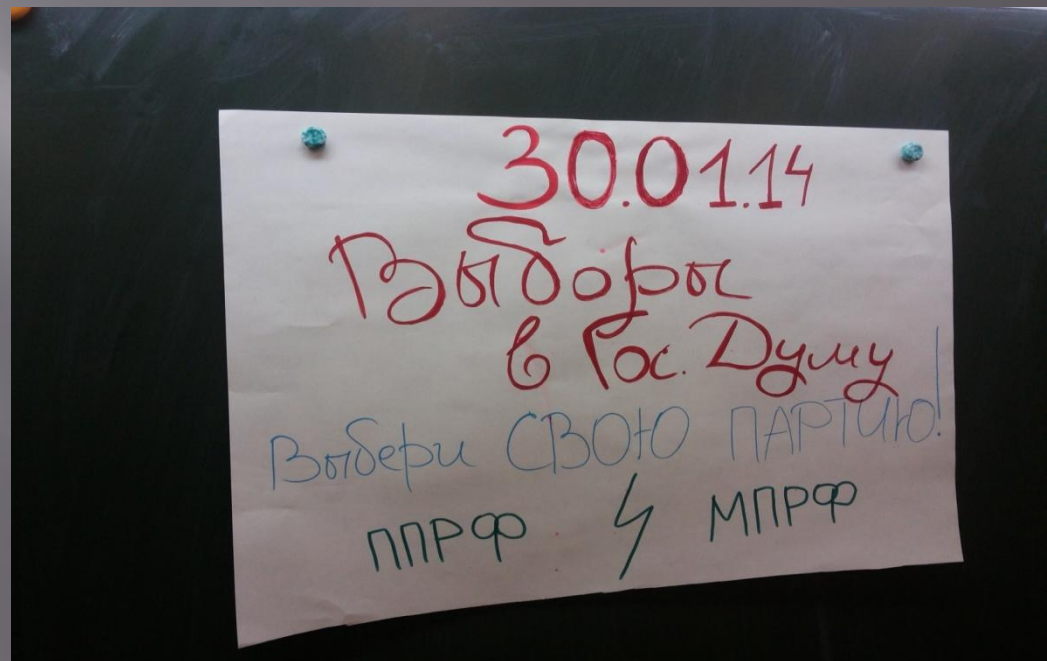 30.01.14
Выборы
в Гос. Думу
Выбери СВОЮ ПАРТИЮ!
ППРФ МПРФ